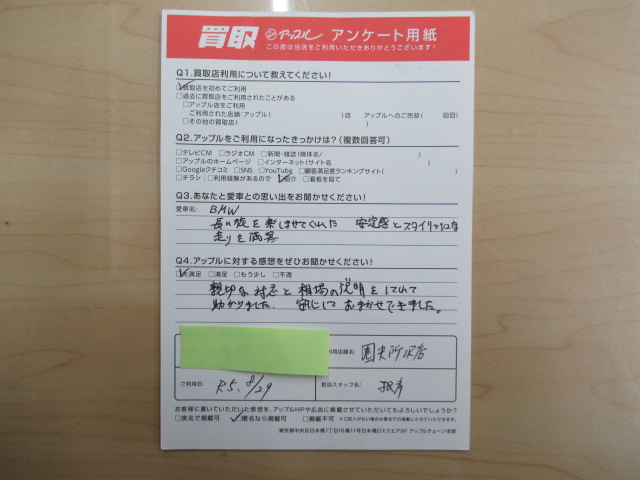 買取 アップル アンケート用紙
この度は当店をご利用いただきありがとうございます！
Q1.買取店利用について教えてください！
買取店を初めてご利用
□過去に買取店をご利用されたことがある
□アップル店をご利用
ご利用された店舗:アップル( )店 アップルへのご売却( 回目)
□その他の買取店( )
Q2.アップルをご利用になったきっかけは？(複数回答可)
□テレビCM □ラジオCM □新聞・雑誌(媒体名/ )
□アップルのホームページ □インターネット(サイト名 )
□Googleクチコミ □SNS □YouTube □顧客満足度ランキングサイト( )
□チラシ □利用経験があるので ☑紹介 □看板を見て
Q3.あなたと愛車との思い出をお聞かせください！
愛車名: BMW
長い旅を楽しませてくれた 安定感とスタイリッシュな
走りを満喫
Q4.アップルに対する感想をぜひお聞かせください！
☑大満足 □満足 □もう少し □不満
親切な対応と相場の説明をしてくれて
助かりました。安心しておまかせできました。
利用店舗名: 所沢店
ご利用日: R5. 8/29 担当スタッフ名:
お客様に書いていただいた感想を、アップルHPや広告に掲載させていただいてもよろしいでしょうか？
□実名で掲載可 ☑匿名なら掲載可 □掲載不可 ※ご記入がない場合は匿名での掲載とさせていただきます。
東京都中央区日本橋1丁目16番11号日本橋Dスクエア5F アップルチェーン本部